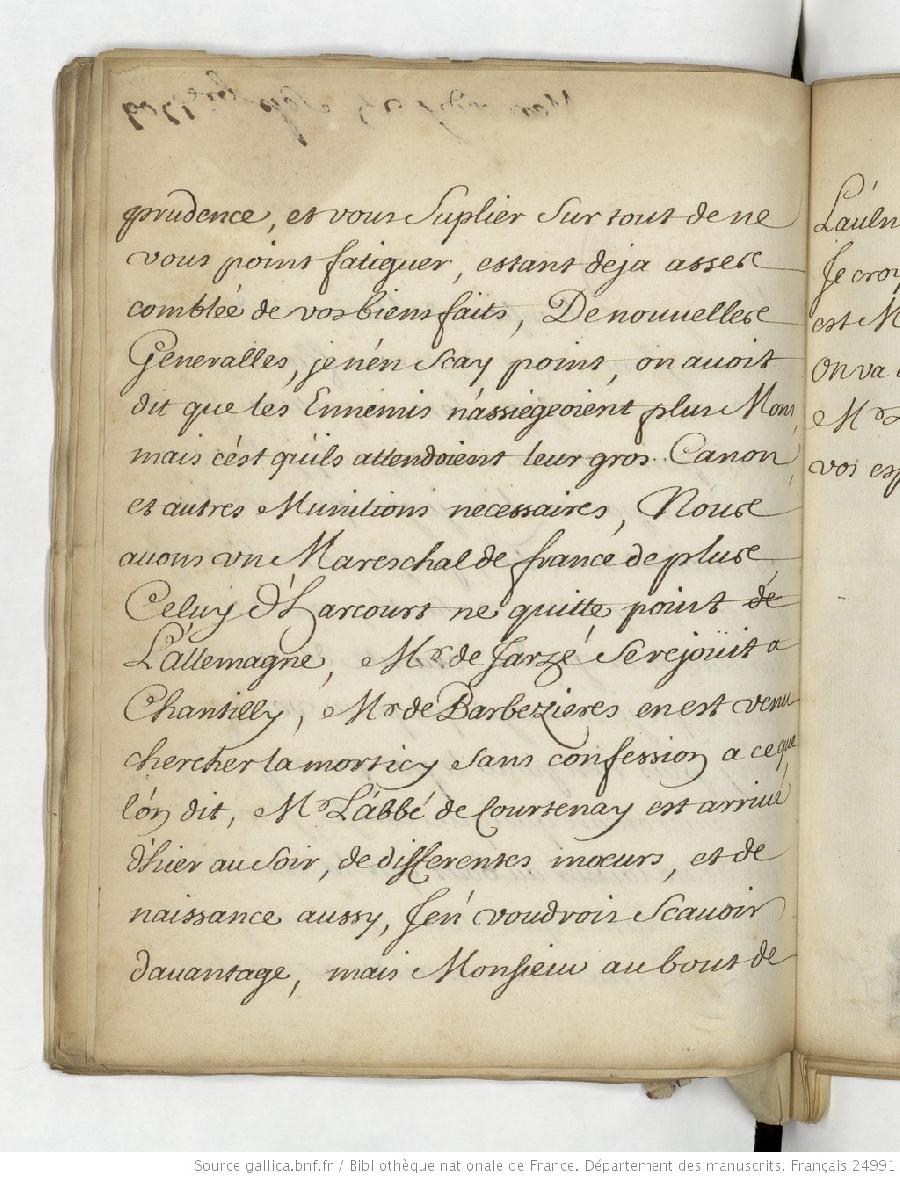 prudence, et vous Suplier Sur tout de ne
vous point fatiguer, estant deja assés
comblée de vos biens faits, De nouvelles
Generalles, je n'en Scay point, on avoit
dit que les Ennemis n'assiegeoient plus Mons,
mais c'est qu'ils attendoient leur gros Canon,
et autres Munitions necessaires, Nous
avons un Mareschal de france de plus
Celuy d'Harcourt ne quitte point de
L'allemagne, Mr de Jarzé Se rejoüit a
Chantilly, Mr de Barbezieres en est venu
chercher la mort icy sans confession a ce que
l'on dit, Mr L'abbé de Courtenay est arrivé
d'hier au Soir, de differentes mœurs, et de
naissance aussy, J'en voudrois Scavoir
davantage, mais Monsieur au bout de
L'auen
Je croy
est M
On va
Mr
vos esp
Source gallica.bnf.fr / Bibliothèque nationale de France. Département des manuscrits. Français 24991